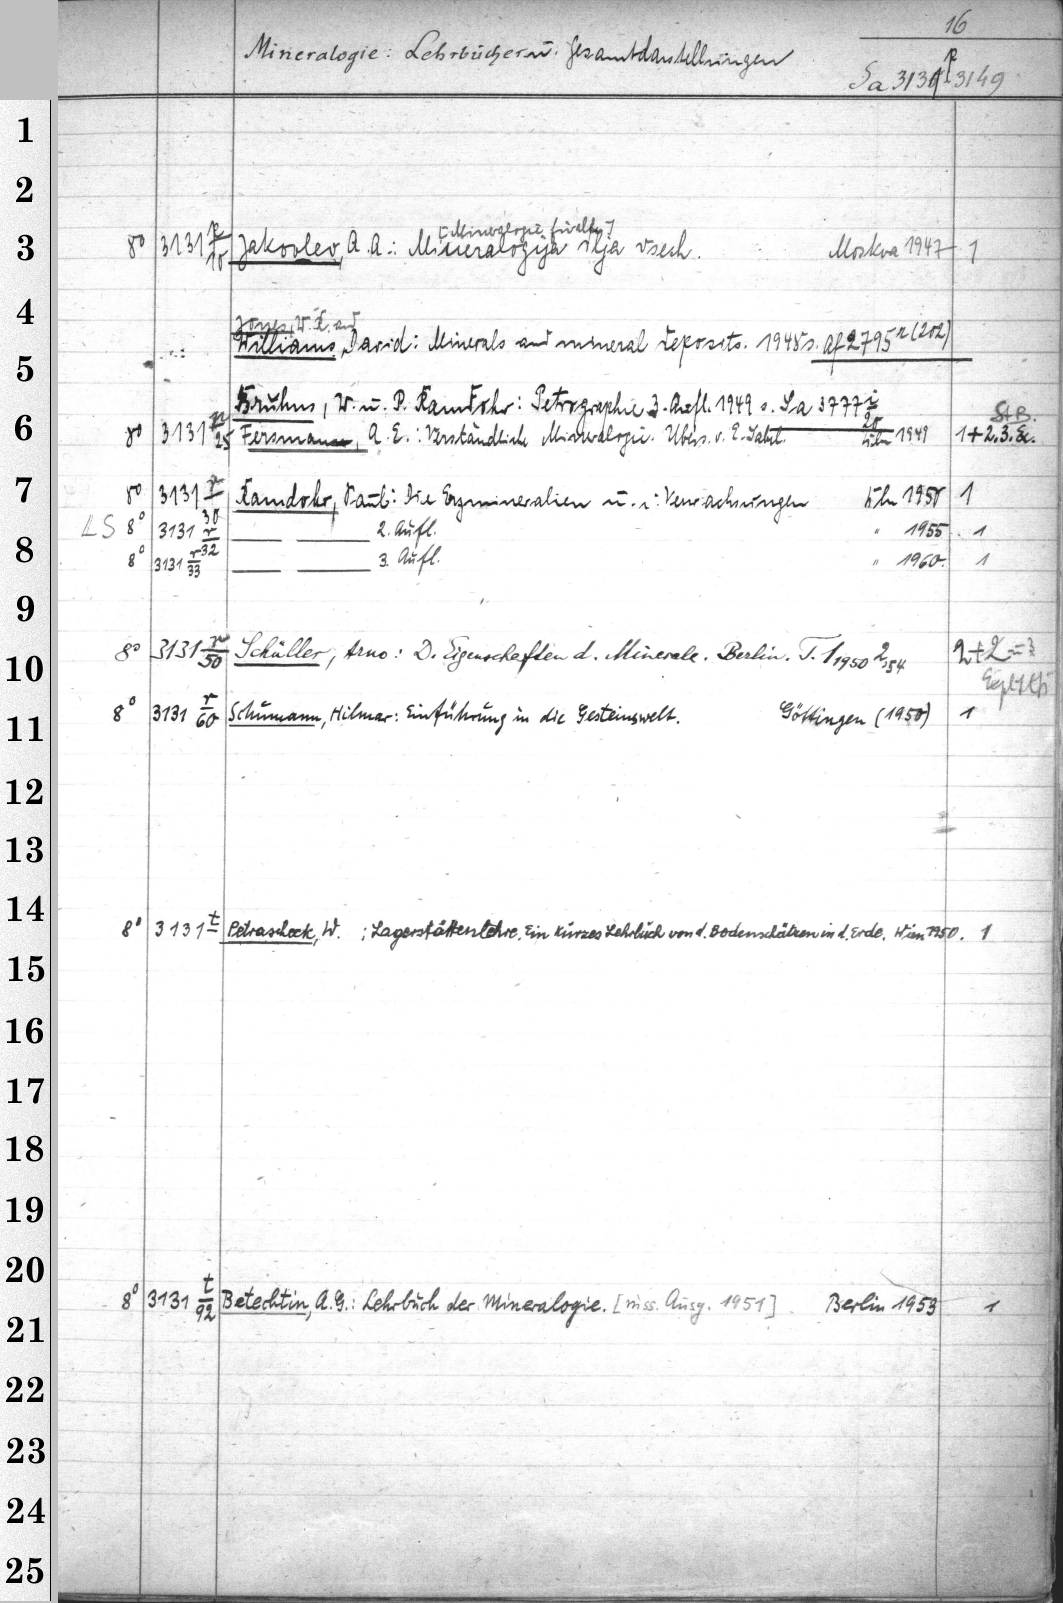 16
Mineralogie: Lehrbücher u. Gesamtdarstellungen
Sa 3131 r 3149
1
2
[Mineralogie für alle]
3 8° 3131 r/10 Jakovlev, A. A.: Mineralogija dlja vsech. Moskva 1947 1
4 Jones, W. R. and
Williams, David: Minerals and mineral deposits. 1948 s. Af 2795 n (202)
5
Bruhns, W. u. P. Ramdohr: Petrographie 3. Aufl. 1949 s. Sa 3777 i/20
St B.
6 8° 3131 r/25 Fersmann, A. E.: Verständliche Mineralogie. Übers. v. E. Bln 1949 1+2.3. Ex.
7 8° 3131 r/30 Ramdohr, Paul: Die Erzmineralien u. i. Verwachsungen Bln 1950 1
LS 8° 3131 r/32 —— —— 2. Aufl. " 1955 1
8 8° 3131 r/33 —— —— 3. Aufl. " 1960. 1
9
10 8° 3131 r/50 Schüller, Arno: D. Eigenschaften d. Minerale. Berlin. T. 1 1950 2,54 2+2=3
11 8° 3131 r/60 Schumann, Hilmar: Einführung in die Gesteinswelt. Göttingen (1950) 1
12
13
14 8° 3131 t Petrascheck, W. ; Lagerstättenlehre. Ein kurzes Lehrbuch von d. Bodenschätzen in d. Erde. Wien 1950. 1
15
16
17
18
19
20
8° 3131 t/92 Betechtin, A. G.: Lehrbuch der Mineralogie. [russ. Ausg. 1951] Berlin 1953 1
21
22
23
24
25